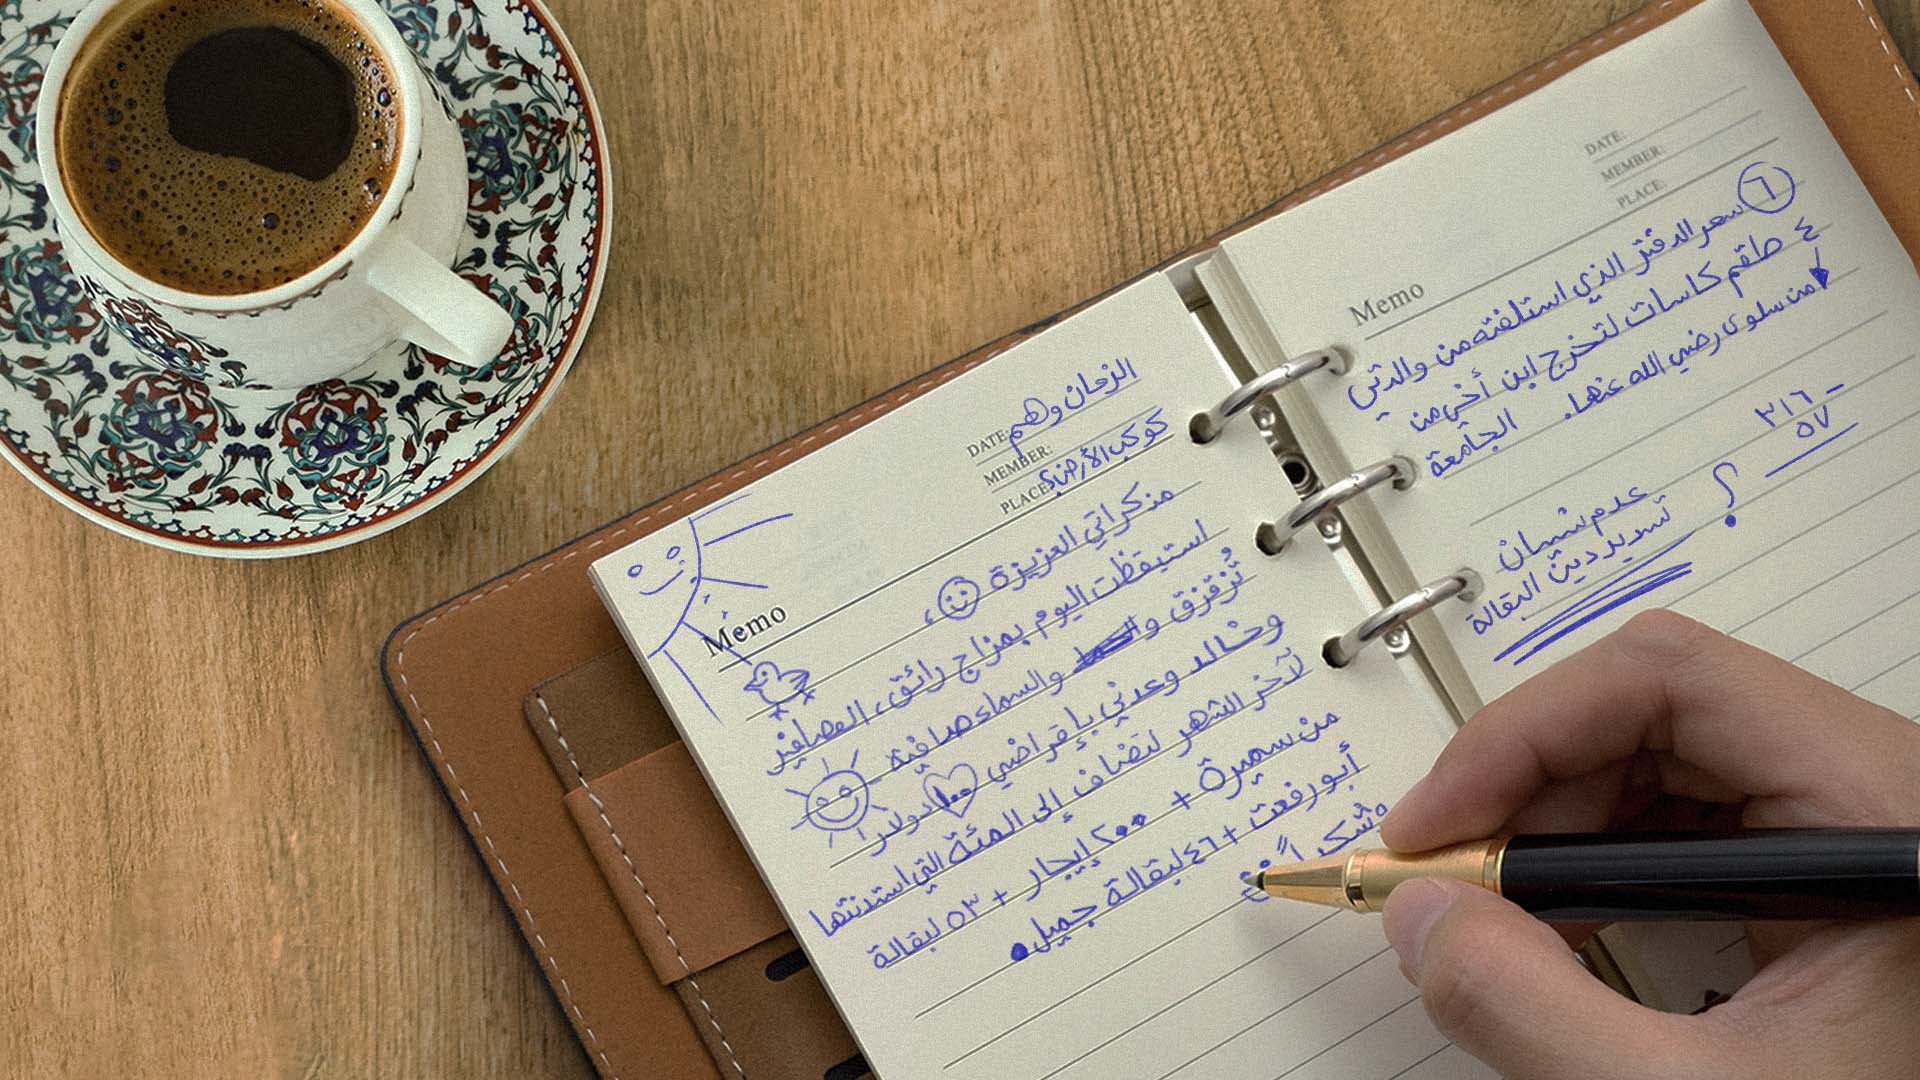 DATE: الزمان وهم
MEMBER:
PLACE: كوكب الأرض؟
Memo
مذكراتي العزيزة ،
استيقظت اليوم بمزاج رائق، العصافير
تُزقزق و والسماء صافية
وخالد وعدني بإقراضي ١٠٠ دولارا
لآخر الشهر لتضاف إلى المئة التي استدنتها
من سميرة + ٢٠٠ إيجار + ٥٣ لبقالة
أبو رفعت + ٤٦ لبقالة جميل.
وشكراً
DATE:
MEMBER:
PLACE:
Memo
٦ سعر الدفتر الذي استلفته من والدتي
٤ طقم كاسات لتخرج ابن أخي من
الجامعة
من سلوى رضي الله عنها.
٣١٦ -
٥٧
؟
عدم نسيان
تسديد دين البقالة